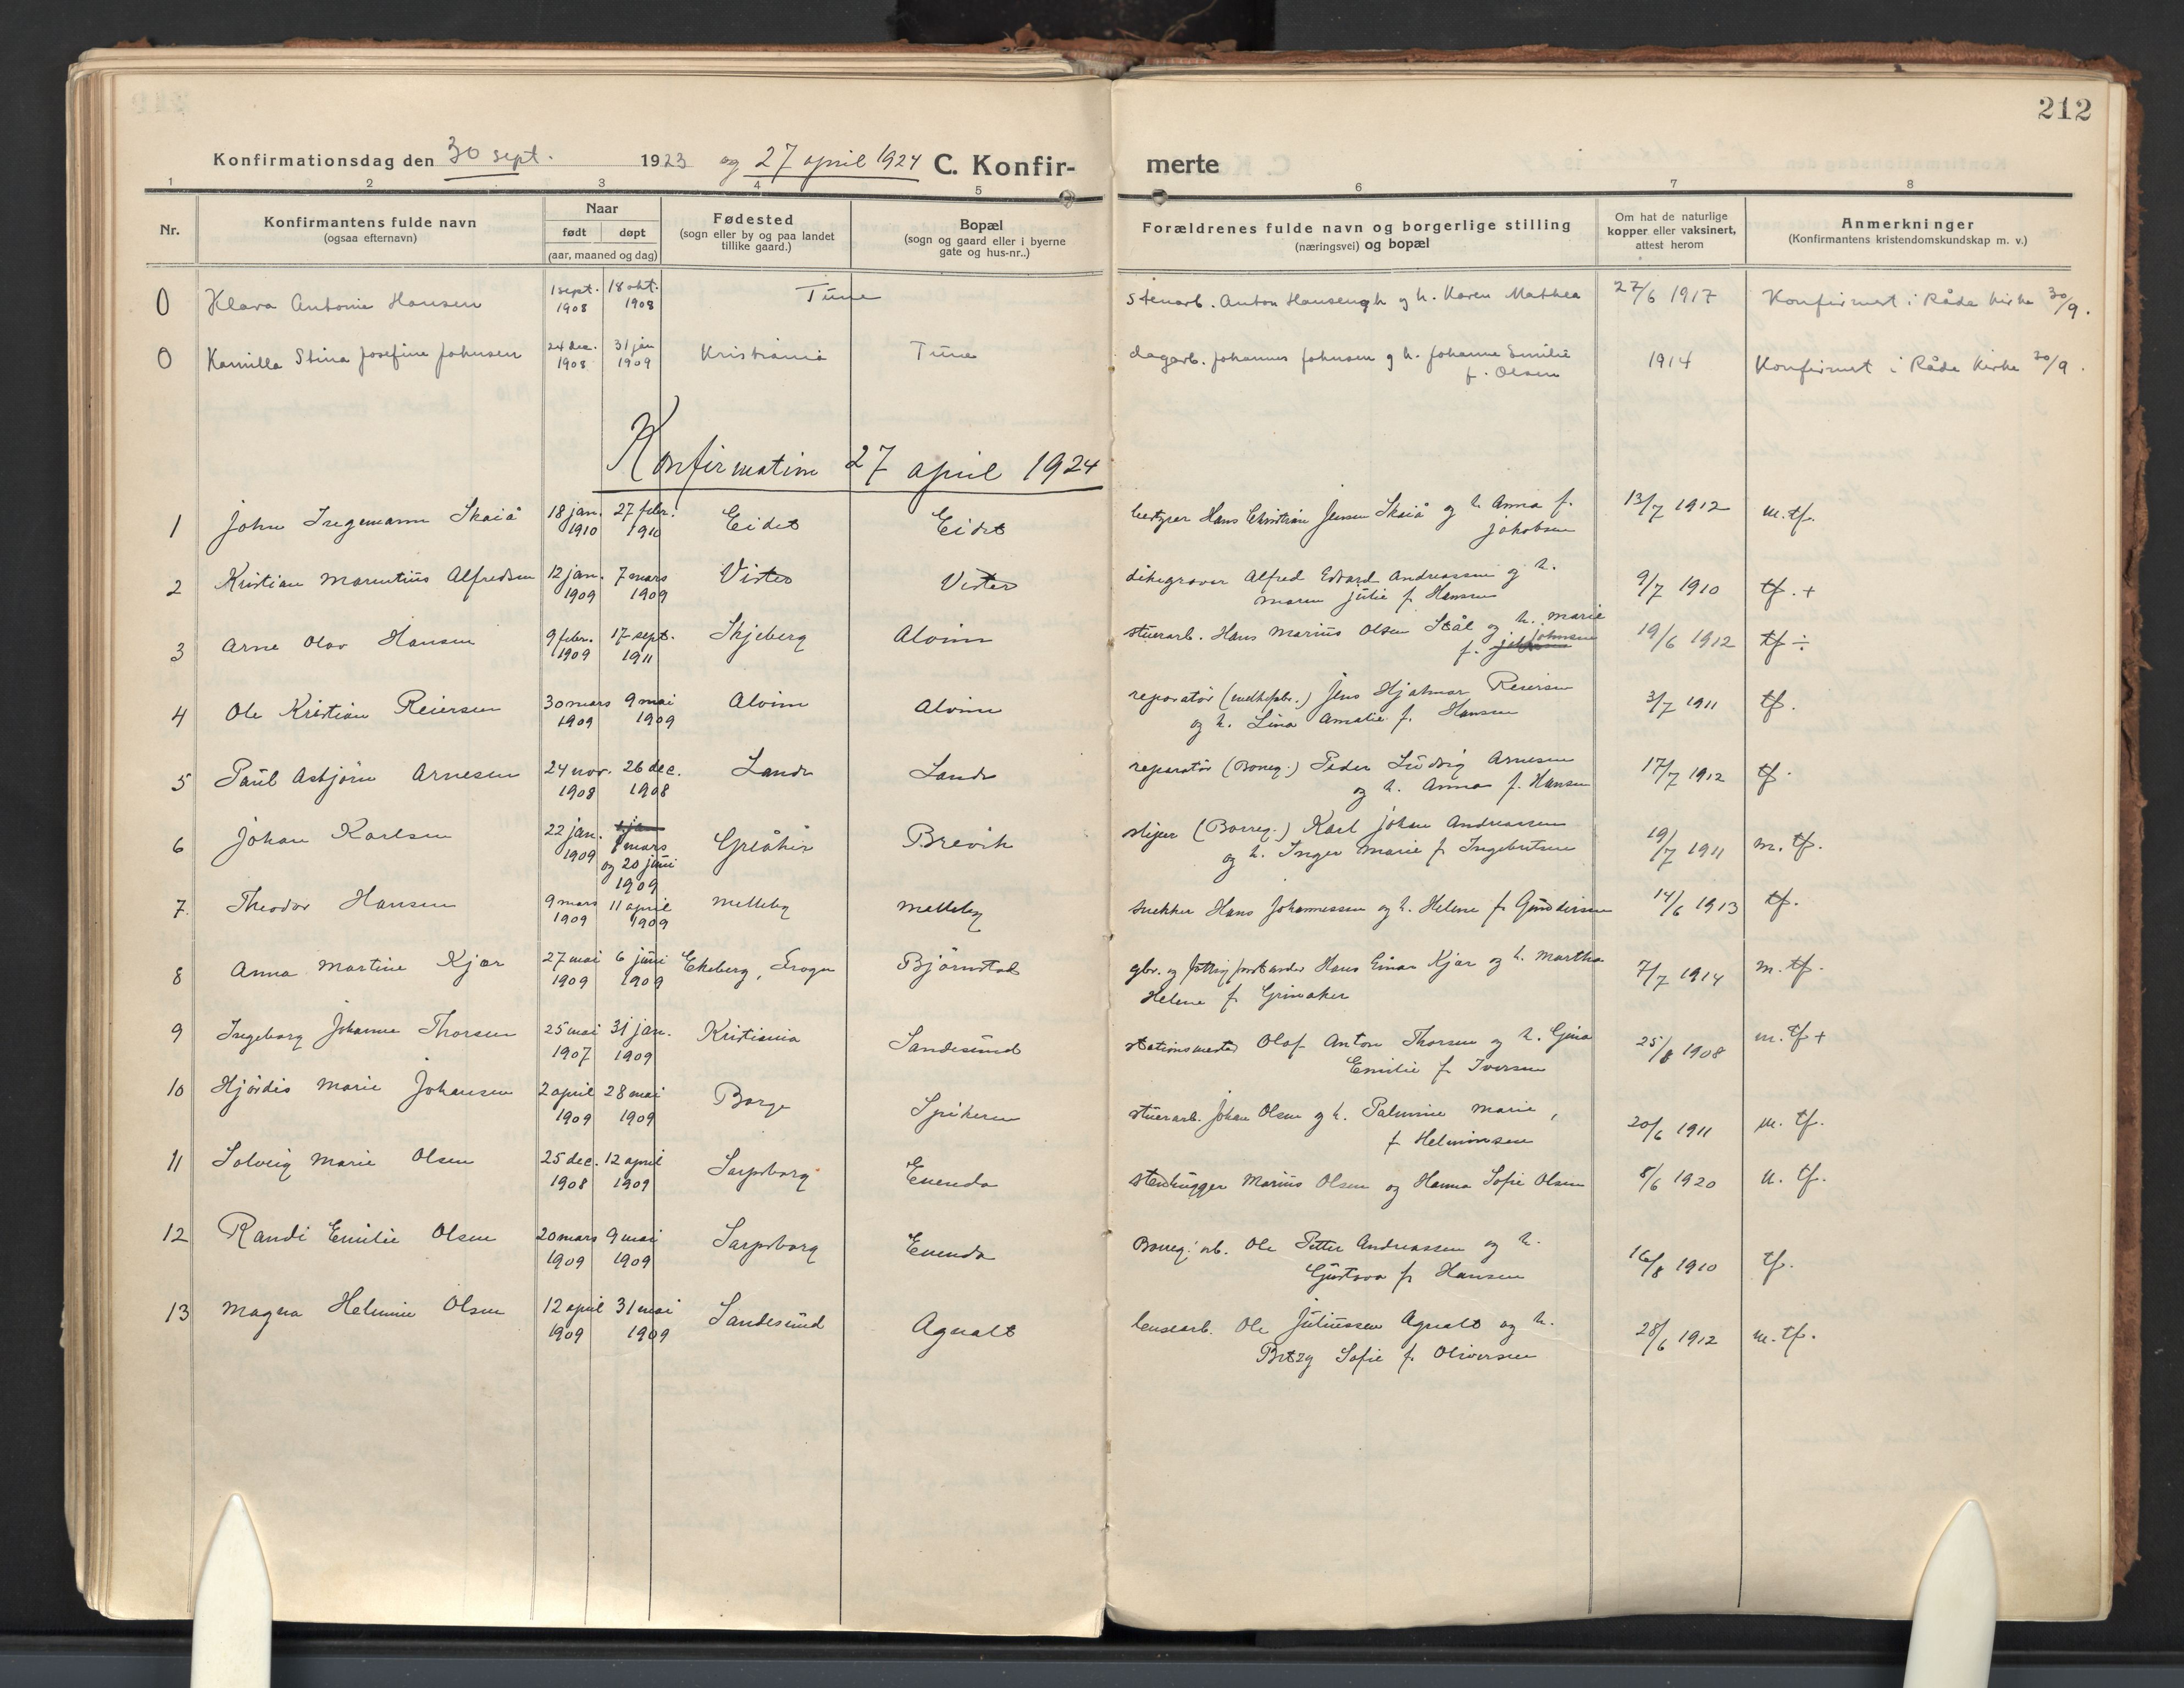 212
Konfirmationsdag den 30 sept. 1923 og 27 april 1924 C. Konfir- merte
1 2 3 4 5 6 7 8
Nr. Konfirmantens fulde navn (ogsaa efternavn) Naar født døpt (aar, maaned og dag) Fødested (sogn eller by og paa landet tillike gaard.) Bopæl (sogn og gaard eller i byerne gate og hus-nr..) Forældrenes fulde navn og borgerlige stilling (næringsvei) og bopæl Om hat de naturlige kopper eller vaksinert, attest herom Anmerkninger (Konfirmantens kristendomskundskap m. v.)
0 Klara Antonie Hansen 1 sept. 1908 18 okt. 1908 Tune Stenarb. Anton Hansen og h. Karen Mathea 27/6 1917 Konfirmert i Råde kirke 30/9.
0 Kamilla Stina Josefine Johnsen 24 dec. 1908 31 jan 1909 Kristiania Tune dagarb. Johannes Johnsen og h. Johanne Emilie
f. Olsen 1914 Konfirmert i Råde kirke 30/9.
Konfirmation 27 april 1924
1 John Ingemann Skaiå 18 jan. 1910 27 febr. 1910 Eidet Eidet bestyrer Hans Christian Jensen Skaiå og h. Anna f.
Jakobsen 13/7 1912 m.tf.
2 Kristian Marentius Alfredsen 12 jan. 1909 7 mars 1909 Vister Vister dikegraver Alfred Edvard Andreassen og h.
Maren Julie f. Hansen 9/7 1910 tf. +
3 Arne Olav Hansen 9 febr. 1909 17 sept. 1911 Skjeberg Alvim stuerarb. Hans Marius Olsen Stål og h. Marie
f. Johnsen 19/6 1912 tf ÷
4 Ole Kristian Reiersen 30 mars 1909 9 mai 1909 Alvim Alvim reparatør Jens Hjalmar Reiersen
og h. Lina Amalie f. Hansen 3/7 1911 tf.
5 Paul Asbjørn Arnesen 24 nov. 1908 26 dec. 1908 Lande Lande reparatør (Borreg.) Peder Ludvig Arnesen
og h. Anna f. Hansen 17/7 1912 tf.
6 Johan Karlsen 22 jan. 1909 mars og 20 juni 1909 Greåker Brevik sliper (Borreg.) Karl Johan Andreassen
og h. Inger Marie f. Ingebretsen 19/7 1911 m. tf.
7. Theodor Hansen 9 mars 1909 11 april 1909 Melleby Melleby snekker Hans Johannessen og h. Helene f. Gundersen 14/6 1913 tf.
8 Anna Martine Kjær 27 mai 1909 6 juni 1909 Ekeberg, Bjørnstad gbr. og Hans Einar Kjær og h. Martha
Helene f. Grimaker 7/7 1914 m. tf.
9 Ingeborg Johanne Thorsen 25 mai 1907 31 jan. 1909 Kristiania Sandesund stationsmester Olaf Anton Thorsen og h. Gina
Emilie f. Iversen 25/8 1908 m. tf +
10 Hjørdis Marie Johansen 2 april 1909 28 mai 1909 Borge Spikeren stuerarb. Johan Olsen og h. Palmine Marie,
f. Helminsen 20/6 1911 m. tf.
11 Solveig Marie Olsen 25 dec. 1908 12 april 1909 Sarpsborg Enenda stenhugger Marius Olsen og Hanna Sofie Olsen 8/6 1920 u. tf.
12 Randi Emilie Olsen 20 mars 1909 9 mai 1909 Sarpsborg Enenda Borreg. arb. Ole Petter Andreassen og h.
Gustava f. Hansen 16/8 1910 tf.
13 Magna Helmine Olsen 12 april 1909 31 mai 1909 Sandesund Agnalt lensearb. Ole Juliussen Agnalt og h.
Betzy Sofie f. Oliversen 28/6 1912 m. tf.